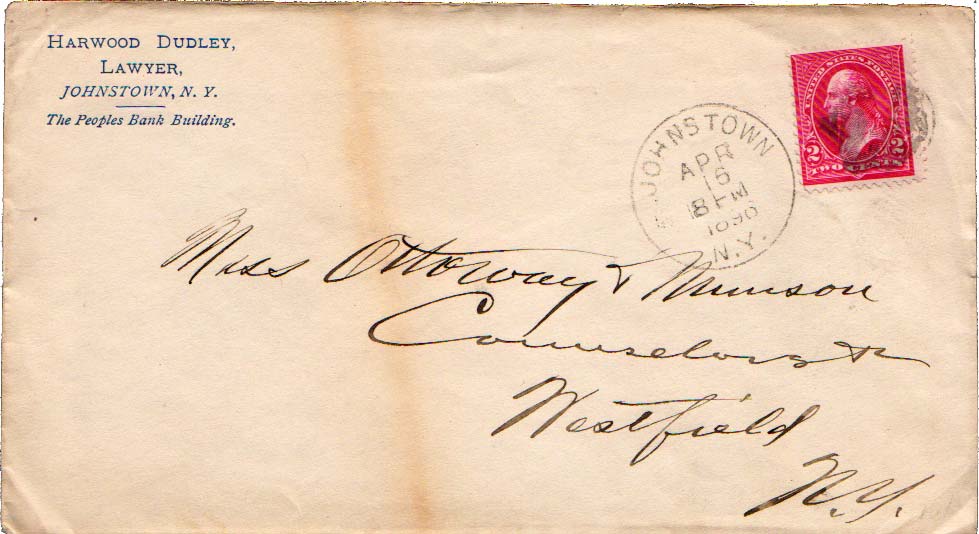 HARWOOD DUDLEY,
LAWYER,
JOHNSTOWN, N. Y.
The Peoples Bank Building.
UNITED STATES POSTAGE
2 2
TWO CENTS
JOHNSTOWN
APR
16
8 PM
1896
N.Y.
Mess Ottoway & Munson
Counselors &c
Westfield
N.Y.